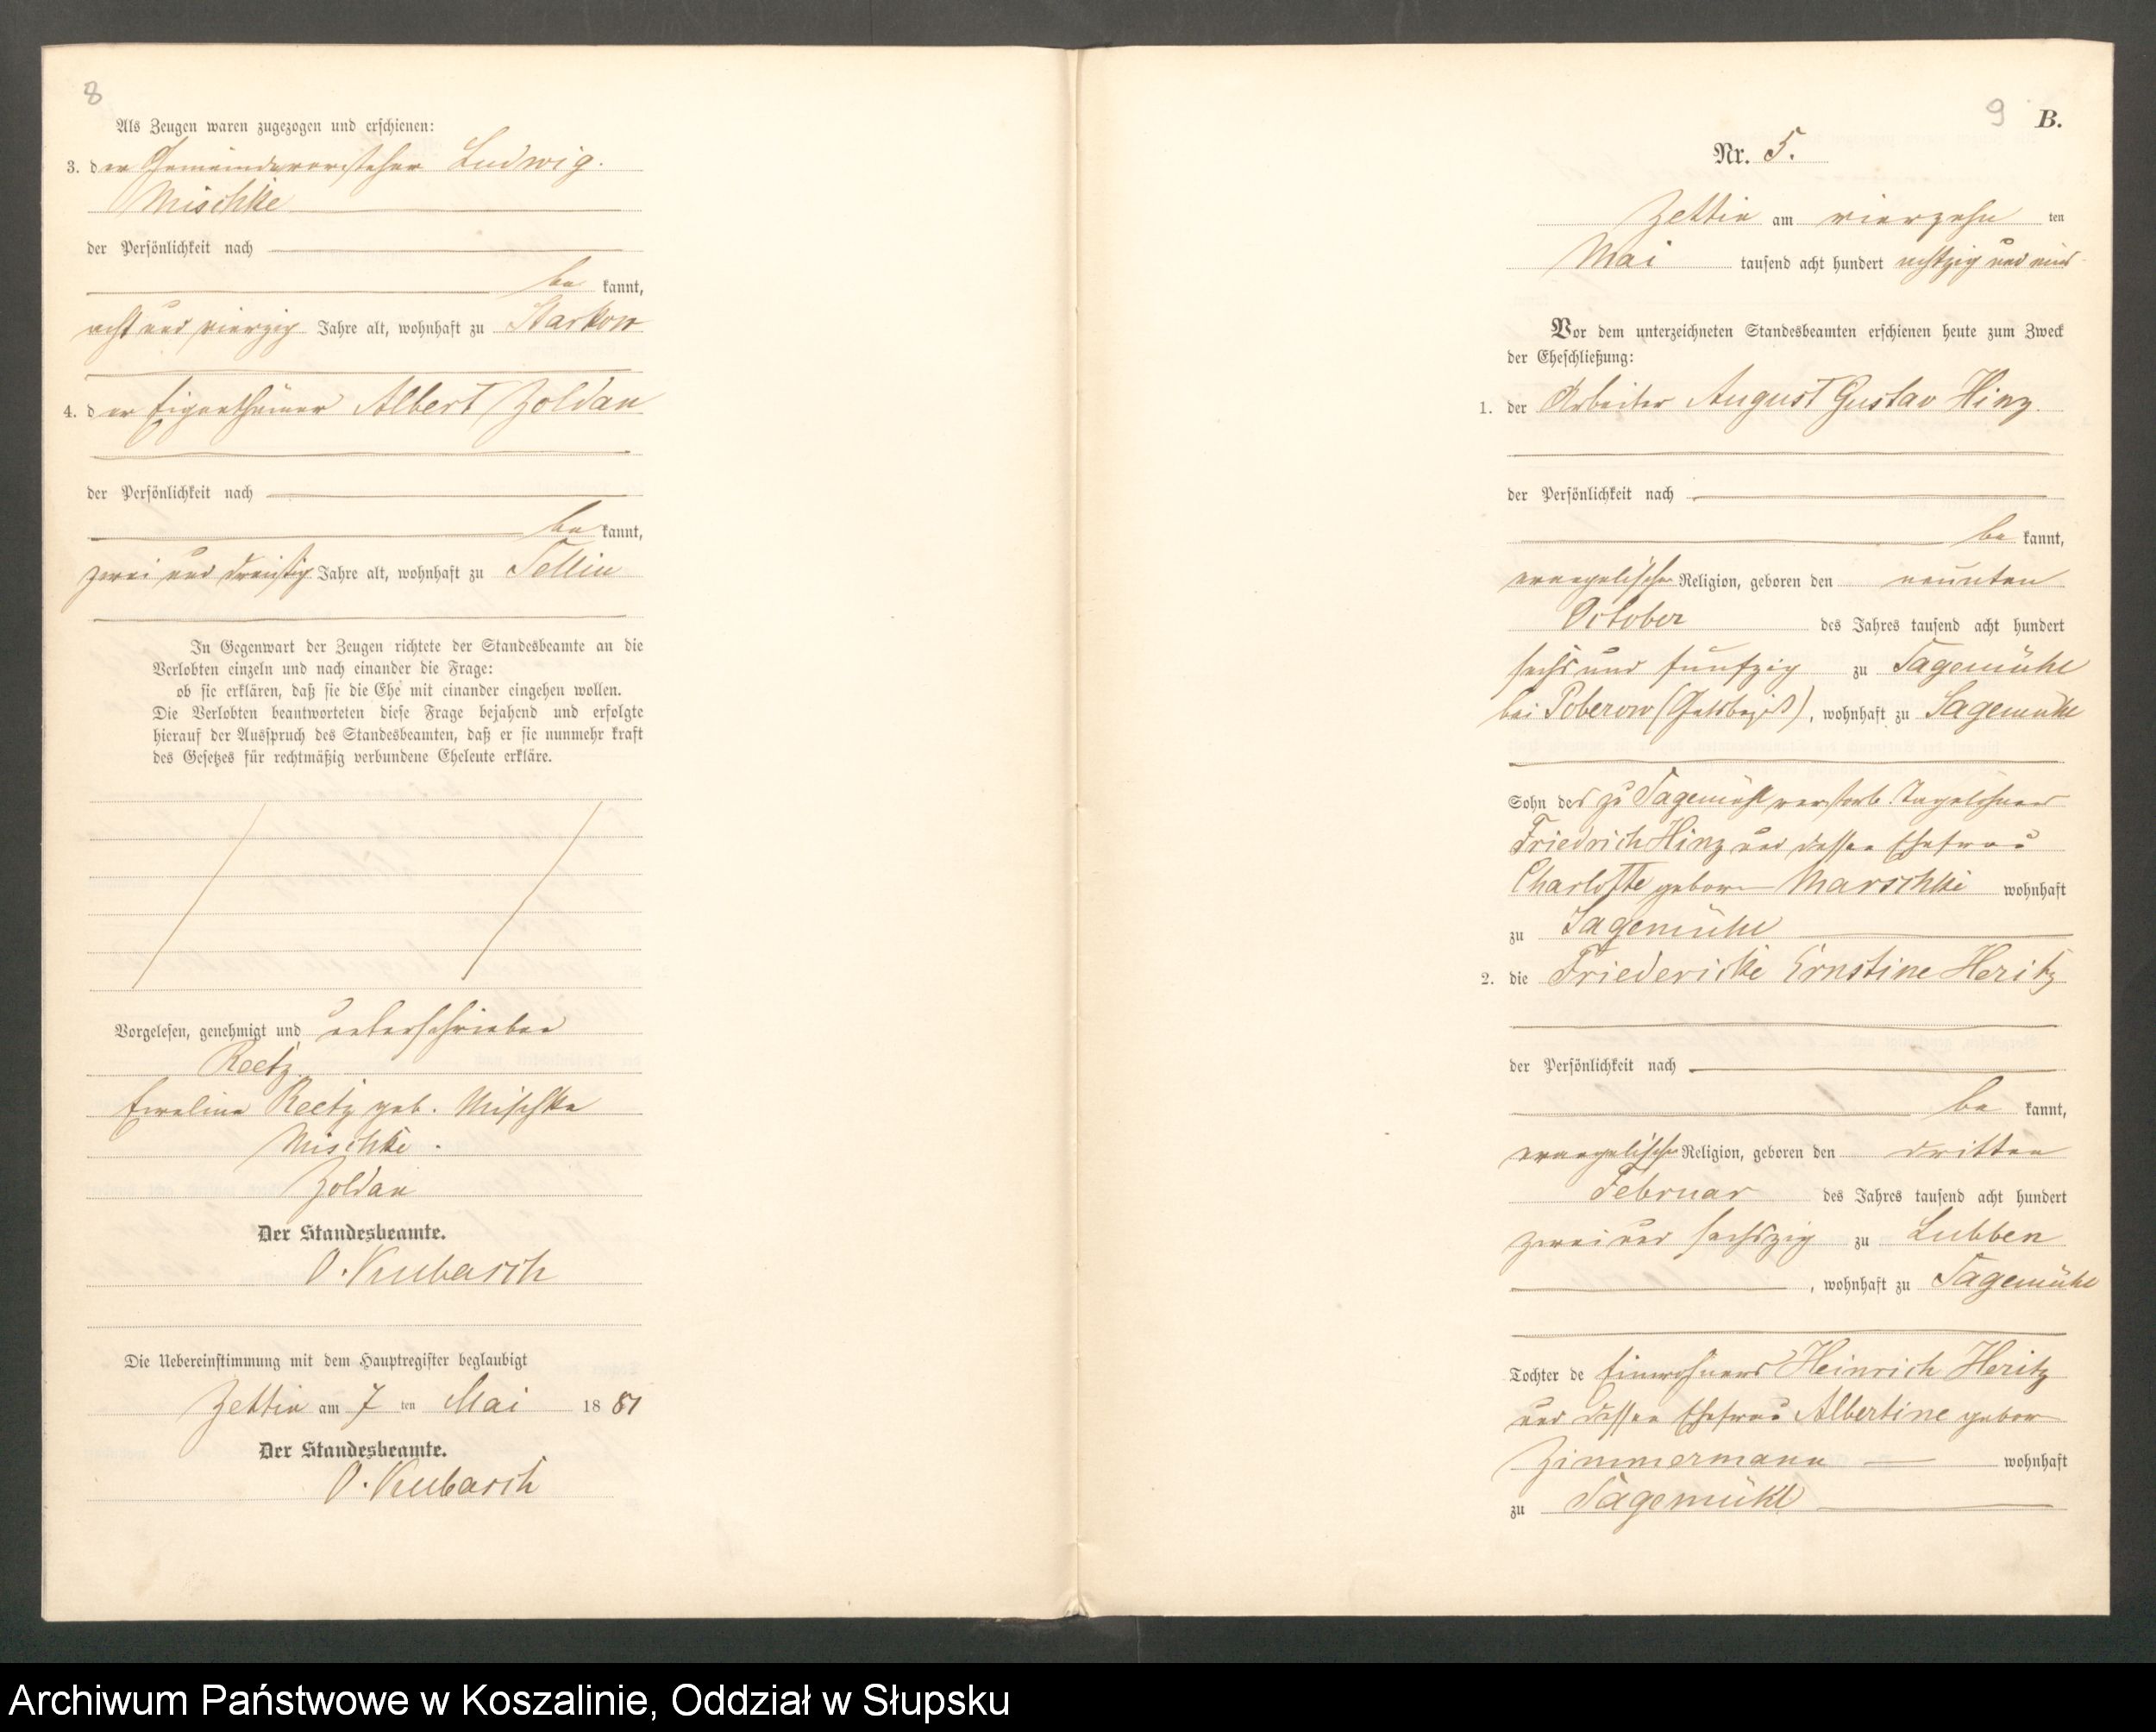 8
Als Zeugen waren zugezogen und erschienen:
3. der Gemeindevorsteher Ludwig
Mischke
der Persönlichkeit nach
be kannt,
acht und vierzig Jahre alt, wohnhaft zu Starkow
4. der Eigenthümer Albert Zoldan
der Persönlichkeit nach
be kannt,
zwei und dreißig Jahre alt, wohnhaft zu Sellin
In Gegenwart der Zeugen richtete der Standesbeamte an die
Verlobten einzeln und nach einander die Frage:
ob sie erklären, daß sie die Ehe mit einander eingehen wollen.
Die Verlobten beantworteten diese Frage bejahend und erfolgte
hierauf der Ausspruch des Standesbeamten, daß er sie nunmehr kraft
des Gesetzes für rechtmäßig verbundene Eheleute erkläre.
Vorgelesen, genehmigt und unterschrieben
Reetz
Eveline Reetz geb. Mischke
Mischke.
Zoldan
Der Standesbeamte.
O. Kubasch
Die Uebereinstimmung mit dem Hauptregister beglaubigt
Zettin am 7 ten Mai 1881
Der Standesbeamte.
O. Kubasch
9 B.
Nr. 5.
Zettin am vierzehn ten
Mai tausend acht hundert achtzig und eins
Vor dem unterzeichneten Standesbeamten erschienen heute zum Zweck
der Eheschließung:
1. der Arbeiter August Gustav Hinz
der Persönlichkeit nach
be kannt,
evangelischer Religion, geboren den neunten
October des Jahres tausend acht hundert
sechs und fünfzig zu Sagemühl
bei Poberow (Gutsbezirk), wohnhaft zu Sagemühl
Sohn des zu Sagemühl verstorb. Tagelöhners
Friedrich Hinz und dessen Ehefrau
Charlotte geborn Marschke wohnhaft
zu Sagemühl
2. die Friedericke Ernstine Heritz
der Persönlichkeit nach
be kannt,
evangelischer Religion, geboren den dritten
Februar des Jahres tausend acht hundert
zwei und sechszig zu Lubben
, wohnhaft zu Sagemühl
Tochter de Einwohners Heinrich Heritz
und dessen Ehefrau Albertine geborn
Zimmermann wohnhaft
zu Sagemühl
Archiwum Państwowe w Koszalinie, Oddział w Słupsku